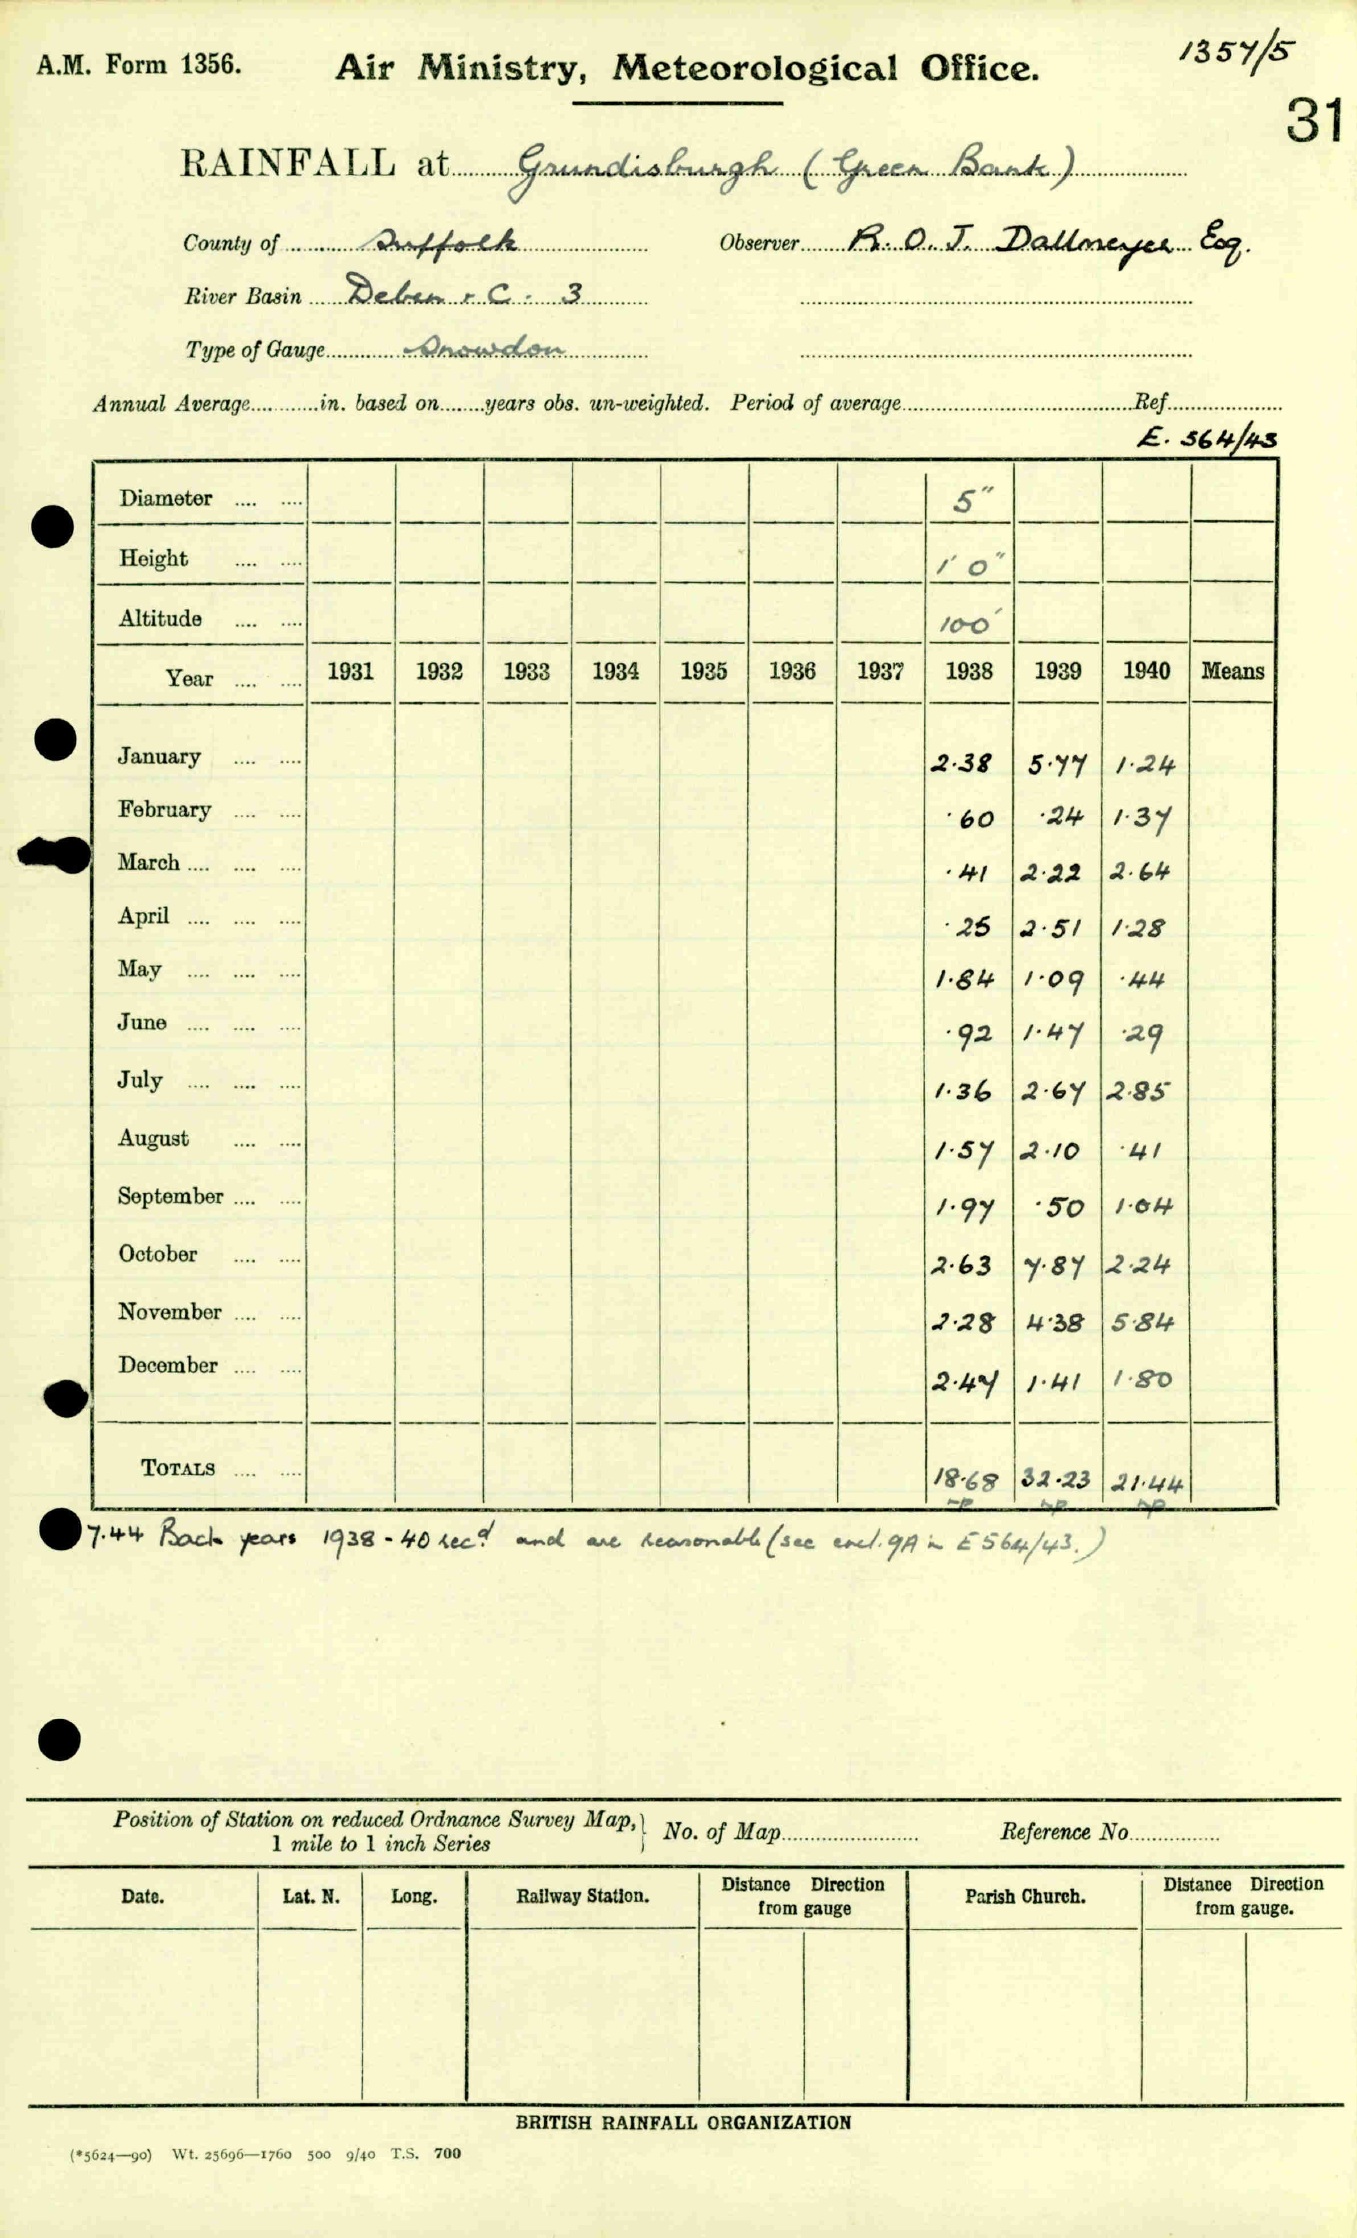 A.M. Form 1356.
Air Ministry, Meteorological Office.
1357/5
31
RAINFALL at Grundisburgh (Green Bank)
County of Suffolk Observer R. O. J. Dallmeyer Esq.
River Basin Deben + C. 3
Type of Gauge Snowdon
Annual Average in. based on years obs. un-weighted. Period of average Ref.
E. 564/43
Diameter 5"
Height 1' 0"
Altitude 100'
Year 1931 1932 1933 1934 1935 1936 1937 1938 1939 1940 Means
January 2.38 5.77 1.24
February .60 .24 1.37
March .41 2.22 2.64
April .25 2.51 1.28
May 1.84 1.09 .44
June .92 1.47 .29
July 1.36 2.67 2.85
August 1.57 2.10 .41
September 1.97 .50 1.04
October 2.63 7.87 2.24
November 2.28 4.38 5.84
December 2.47 1.41 1.80
TOTALS 18.68 32.23 21.44
7.44 Back years 1938-40 recd. and are reasonable (see encl. 9A in E564/43.)
Position of Station on reduced Ordnance Survey Map, No. of Map Reference No.
1 mile to 1 inch Series
Date. Lat. N. Long. Railway Station. Distance Direction from gauge Parish Church. Distance Direction from gauge.
BRITISH RAINFALL ORGANIZATION
(*5624—90) Wt. 25696—1760 500 9/40 T.S. 700